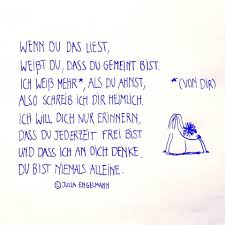 WENN DU DAS LIEST,
WEIßT DU, DASS DU GEMEINT BIST.
ICH WEIß MEHR*, ALS DU AHNST, *(VON DIR)
ALSO SCHREIB ICH DIR HEIMLICH.
ICH WILL DICH NUR ERINNERN,
DASS DU JEDERZEIT FREI BIST
UND DASS ICH AN DICH DENKE.
DU BIST NIEMALS ALLEINE.
© JULIA ENGELMANN